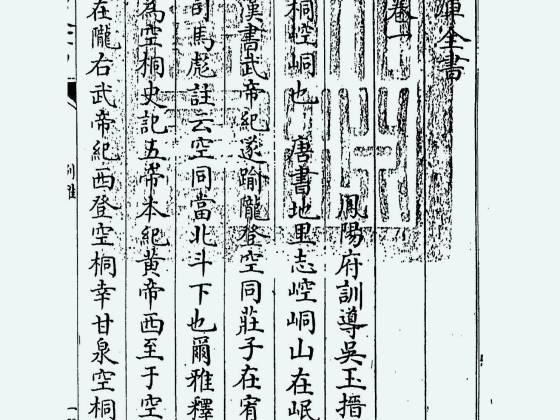 庫全書
卷一
鳳陽府訓導吳玉搢
桐崆峒也 唐書地里志崆峒山在岷
漢書武帝紀遂踰隴登空同莊子在宥
司馬彪註云空同當北斗下也爾雅釋
為空桐史記五帝本紀黃帝西至于空
在隴右武帝紀西登空桐幸甘泉空桐
別雅